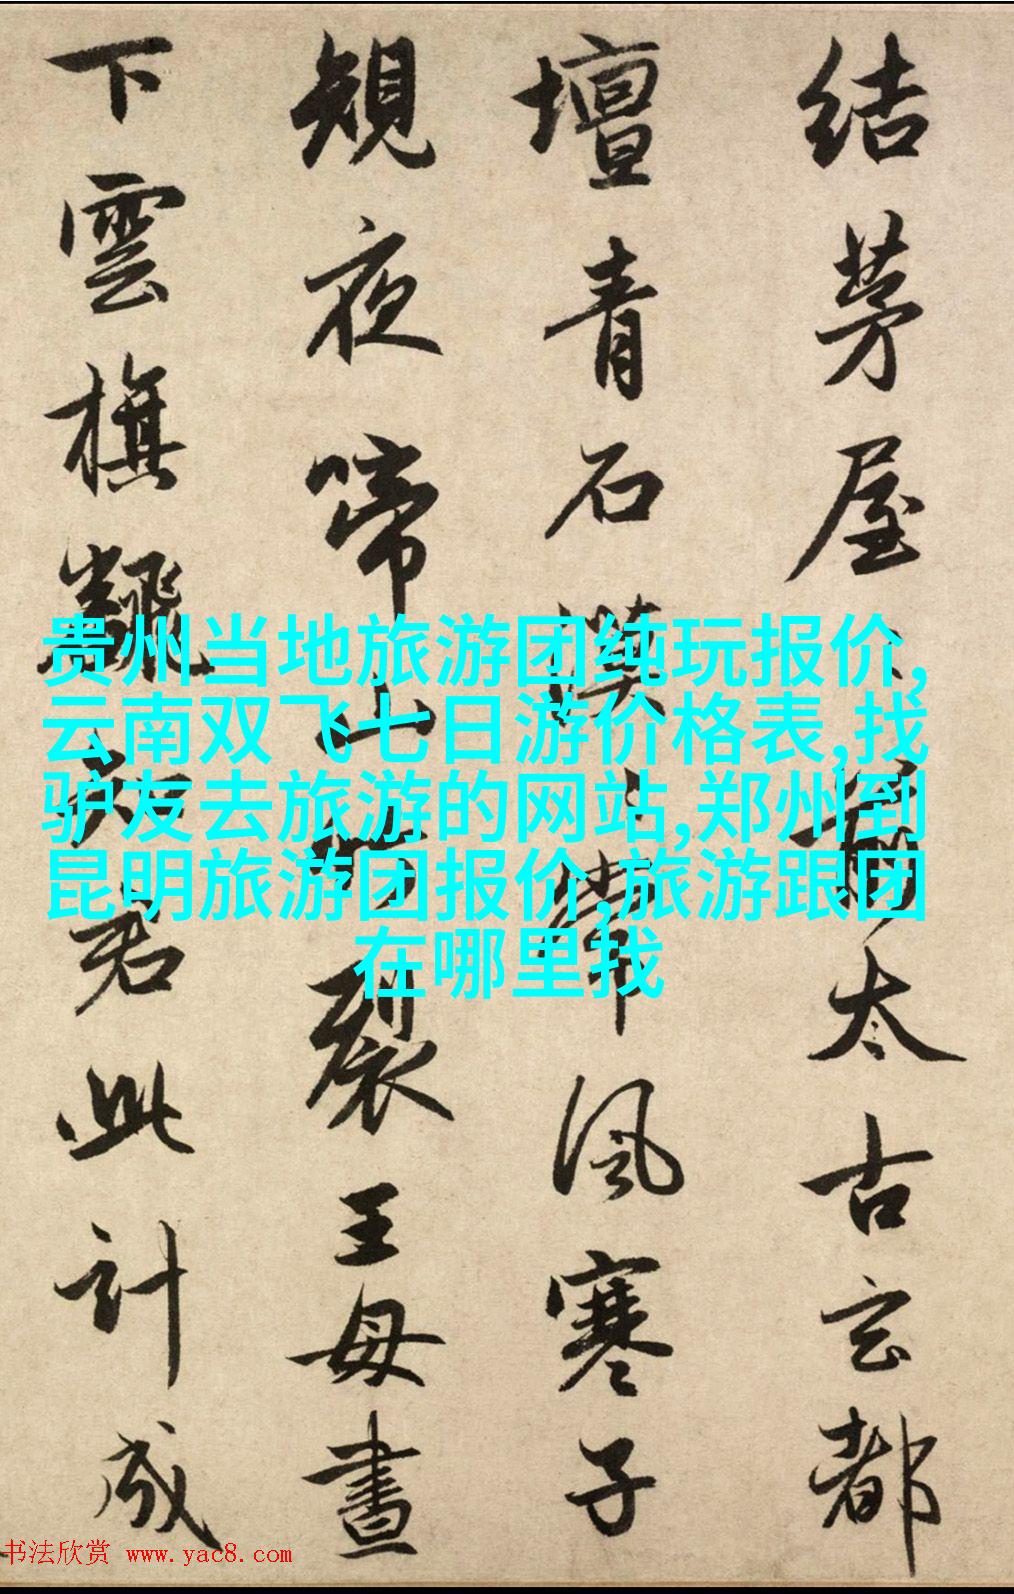 结茅屋〻前太古玄都
壇青石漠〻常風寒子
規夜啼山竹裂王母晝
下雲旗翻知君此計成
贵州当地旅游团纯玩报价,
云南双飞七日游价格表,找
驴友去旅游的网站,郑州到
昆明旅游团报价,旅游跟团
在哪里找
书法欣赏 www.yac8.com